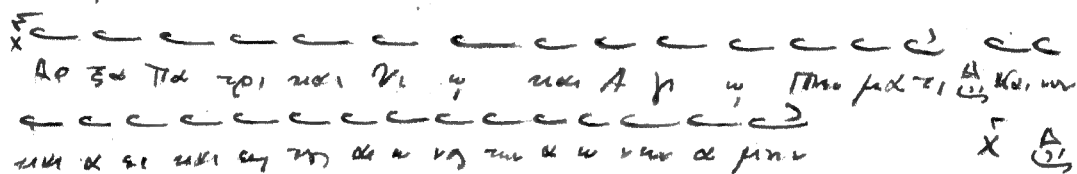 Δο ξα Πα τρι και Υι ῳ και Α γι ῳ Πνευ μα τι Δι Και νυν
και α ει και εις τους αι ω νας των αι ω νων α μην χ Δι